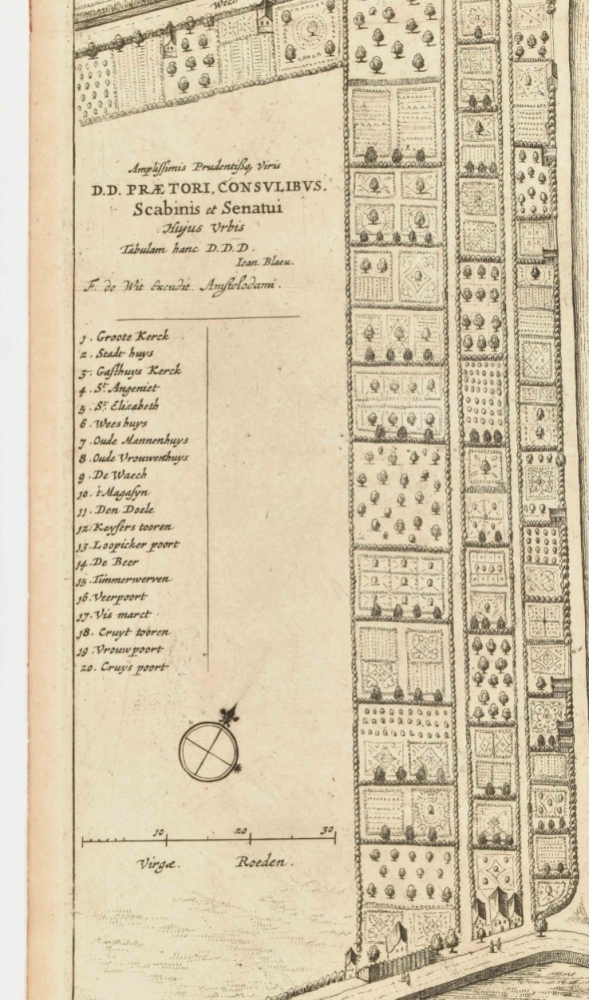 Weeᵗ
Amplissimis Prudentissq, Viris
D.D. PRÆTORI, CONSVLIBVS.
Scabinis et Senatui
Hujus Vrbis
Tabulam hanc D.D.D.
Ioan Blaeu.
F. de Wit excudit Amstelodami.
1. Groote Kerck
2. Stadt huys
3. Gasthuys Kerck
4. Sᵗ Angeniet
5. Sᵗ Elisabeth
6. Weeshuys
7. Oude Mannenhuys
8. Oude Vrouwenhuys
9. De Waech
10. t'Magasyn
11. Den Doele
12. Keysers tooren
13. Loopicker poort
14. De Beer
15. Timmerwerven
16. Veerpoort
17. Vis marct
18. Cruyt tooren
19. Vrouwpoort
20. Cruys poort
10 20 30
Virgæ. Roeden.